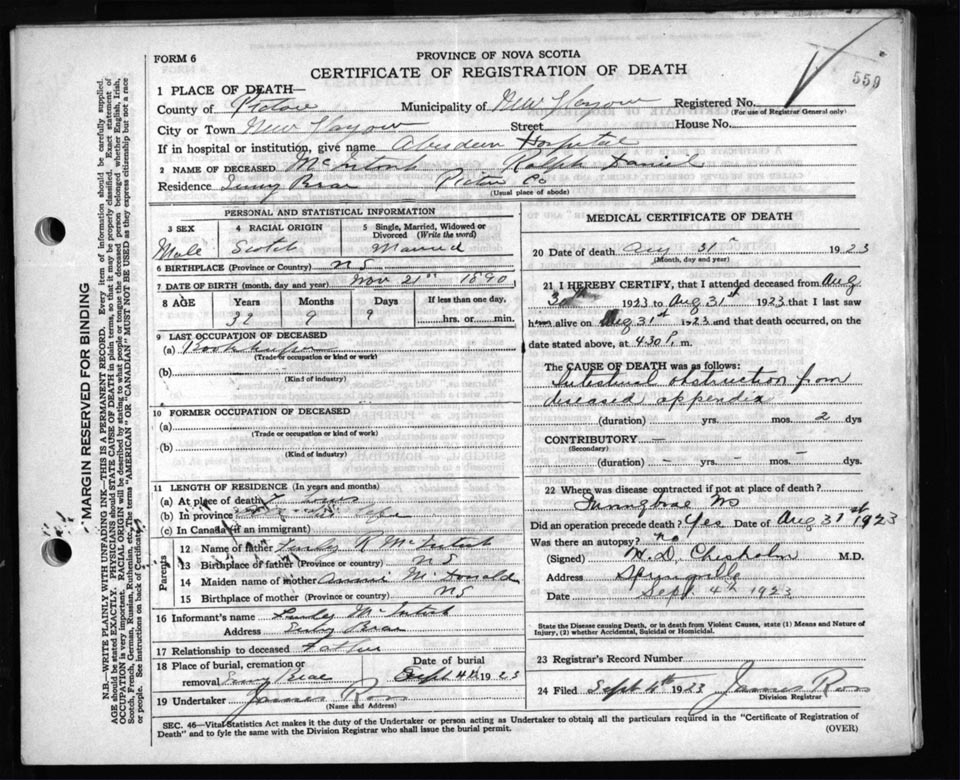 FORM 6
PROVINCE OF NOVA SCOTIA
CERTIFICATE OF REGISTRATION OF DEATH
559
1 PLACE OF DEATH—
County of Pictou Municipality of New Glasgow Registered No.
(For use of Registrar General only)
City or Town New Glasgow Street House No.
If in hospital or institution, give name Aberdeen Hospital
2 NAME OF DECEASED McIntosh Ralph Daniel
Residence Sunny Brae Pictou Co
(Usual place of abode)
PERSONAL AND STATISTICAL INFORMATION
3 SEX 4 RACIAL ORIGIN 5 Single, Married, Widowed or Divorced (Write the word)
Male Scotch Married
6 BIRTHPLACE (Province or Country) NS
7 DATE OF BIRTH (month, day and year) Nov 21st 1890
8 AGE Years Months Days If less than one day,
32 9 9 hrs. or min.
9 LAST OCCUPATION OF DECEASED
(a) Bookkeeper
(Trade or occupation or kind of work)
(b)
(Kind of industry)
10 FORMER OCCUPATION OF DECEASED
(a)
(Trade or occupation or kind of work)
(b)
(Kind of industry)
11 LENGTH OF RESIDENCE (In years and months)
(a) At place of death
(b) In province
(c) In Canada (if an immigrant)
Parents
12 Name of father Finley R McIntosh
13 Birthplace of father (Province or country) NS
14 Maiden name of mother Annie McDonald
15 Birthplace of mother (Province or country) NS
16 Informant's name Finley McIntosh
Address Sunny Brae
17 Relationship to deceased Father
18 Place of burial, cremation or removal Sunny Brae
Date of burial Sept 4th 1923
19 Undertaker James Ross
(Name and Address)
MEDICAL CERTIFICATE OF DEATH
20 Date of death Aug 31st 1923
(Month, day and year)
21 I HEREBY CERTIFY, that I attended deceased from Aug
30th 1923 to Aug 31st 1923 that I last saw
him alive on Aug 31st 1923 and that death occurred, on
date stated above, at 430 P. m.
The CAUSE OF DEATH was as follows:
Intestinal obstruction from
diseased appendix
(duration) yrs. mos. 2 dys
CONTRIBUTORY —
(Secondary)
(duration) — yrs. — mos — dys.
22 Where was disease contracted if not at place of death?
Sunnybrae NS
Did an operation precede death? Yes Date of Aug 31st 1923
Was there an autopsy? no
(Signed) H. D. Chisholm M.D.
Address Springville
Date Sept. 4th 1923
State the Disease causing Death, or in death from Violent Causes, state (1) Means and Nature of
Injury, (2) whether Accidental, Suicidal or Homicidal.
23 Registrar's Record Number
24 Filed Sept 4th 1923 James Ross
Division Registrar
SEC. 46—Vital Statistics Act makes it the duty of the Undertaker or person acting as Undertaker to obtain all the particulars required in the "Certificate of Registration of
Death" and to fyle the same with the Division Registrar who shall issue the burial permit.
(OVER)
MARGIN RESERVED FOR BINDING
N.B.—WRITE PLAINLY WITH UNFADING INK—THIS IS A PERMANENT RECORD. Every item of information should be carefully supplied.
AGE should be stated EXACTLY. PHYSICIANS should STATE CAUSE OF DEATH in plain terms, so that it may be properly classified. Exact statement of
OCCUPATION is very important. RACIAL ORIGIN will be described by stating to what people or tongue the deceased person belonged whether English, Irish,
Scotch, French, German, Russian, Ruthenian, etc. The terms "AMERICAN" or "CANADIAN" MUST NOT BE USED as they express citizenship but not a race
or people. See instructions on back of Certificate.